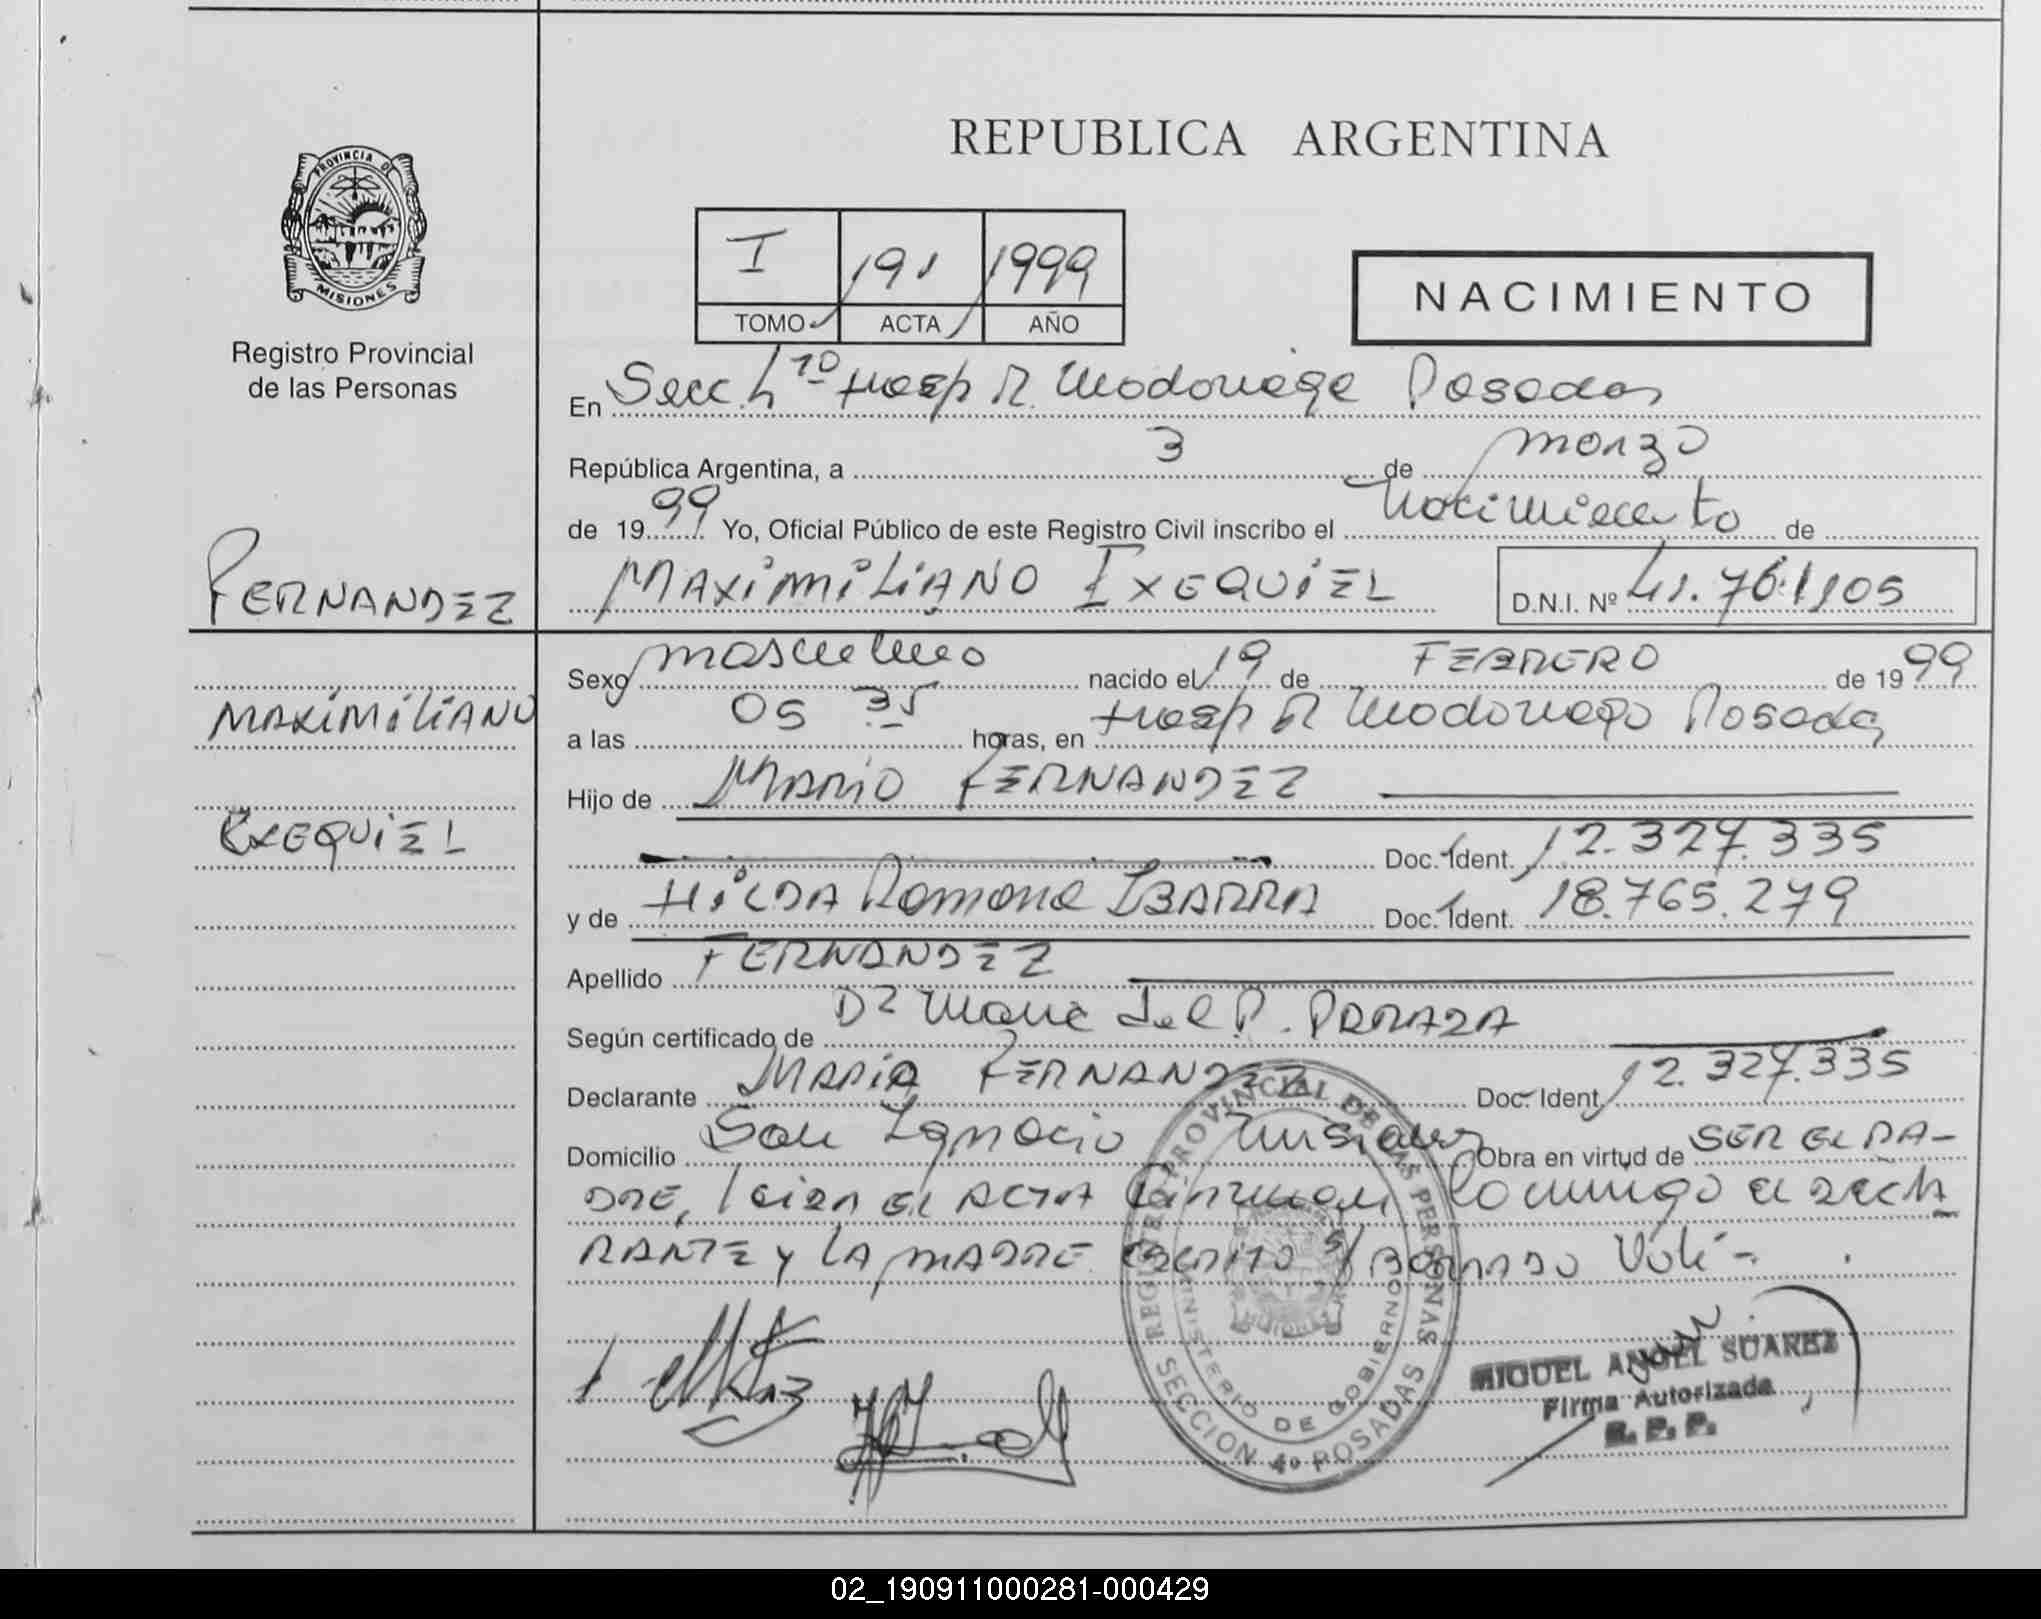 REPUBLICA ARGENTINA
PROVINCIA DE
MISIONES
Registro Provincial
de las Personas
I 191 1999
TOMO ACTA AÑO
NACIMIENTO
En Secc. 4ta Hosp R. Madariaga Posadas
República Argentina, a 3 de marzo
de 1999 Yo, Oficial Público de este Registro Civil inscribo el nacimiento de
FERNANDEZ
MAXIMILIANO EXEQUIEL D.N.I. Nº 41.761.105
MAXIMILIANO
EXEQUIEL
Sexo masculino nacido el 19 de FEBRERO de 1999
a las 05 35 horas, en Hosp R Madariaga Posadas
Hijo de MARIO FERNANDEZ
Doc. Ident. 12.327.335
y de HILDA Ramona IBARRA Doc. Ident. 18.765.279
Apellido FERNANDEZ
Según certificado de Dra Maria del P.
Declarante MARIO FERNANDEZ Doc. Ident. 12.327.335
Domicilio San Ignacio Misiones Obra en virtud de SER EL PA-
DRE, leida EL ACTA firman conmigo el decla
RANTE y LA MADRE. Escrito s/ BORRADO Vale-
REGISTRO PROVINCIAL DE LAS PERSONAS
MINISTERIO DE GOBIERNO
SECCION 4º POSADAS
MIGUEL ANGEL SUAREZ
Firma Autorizada
R. P. P.
02_190911000281-000429